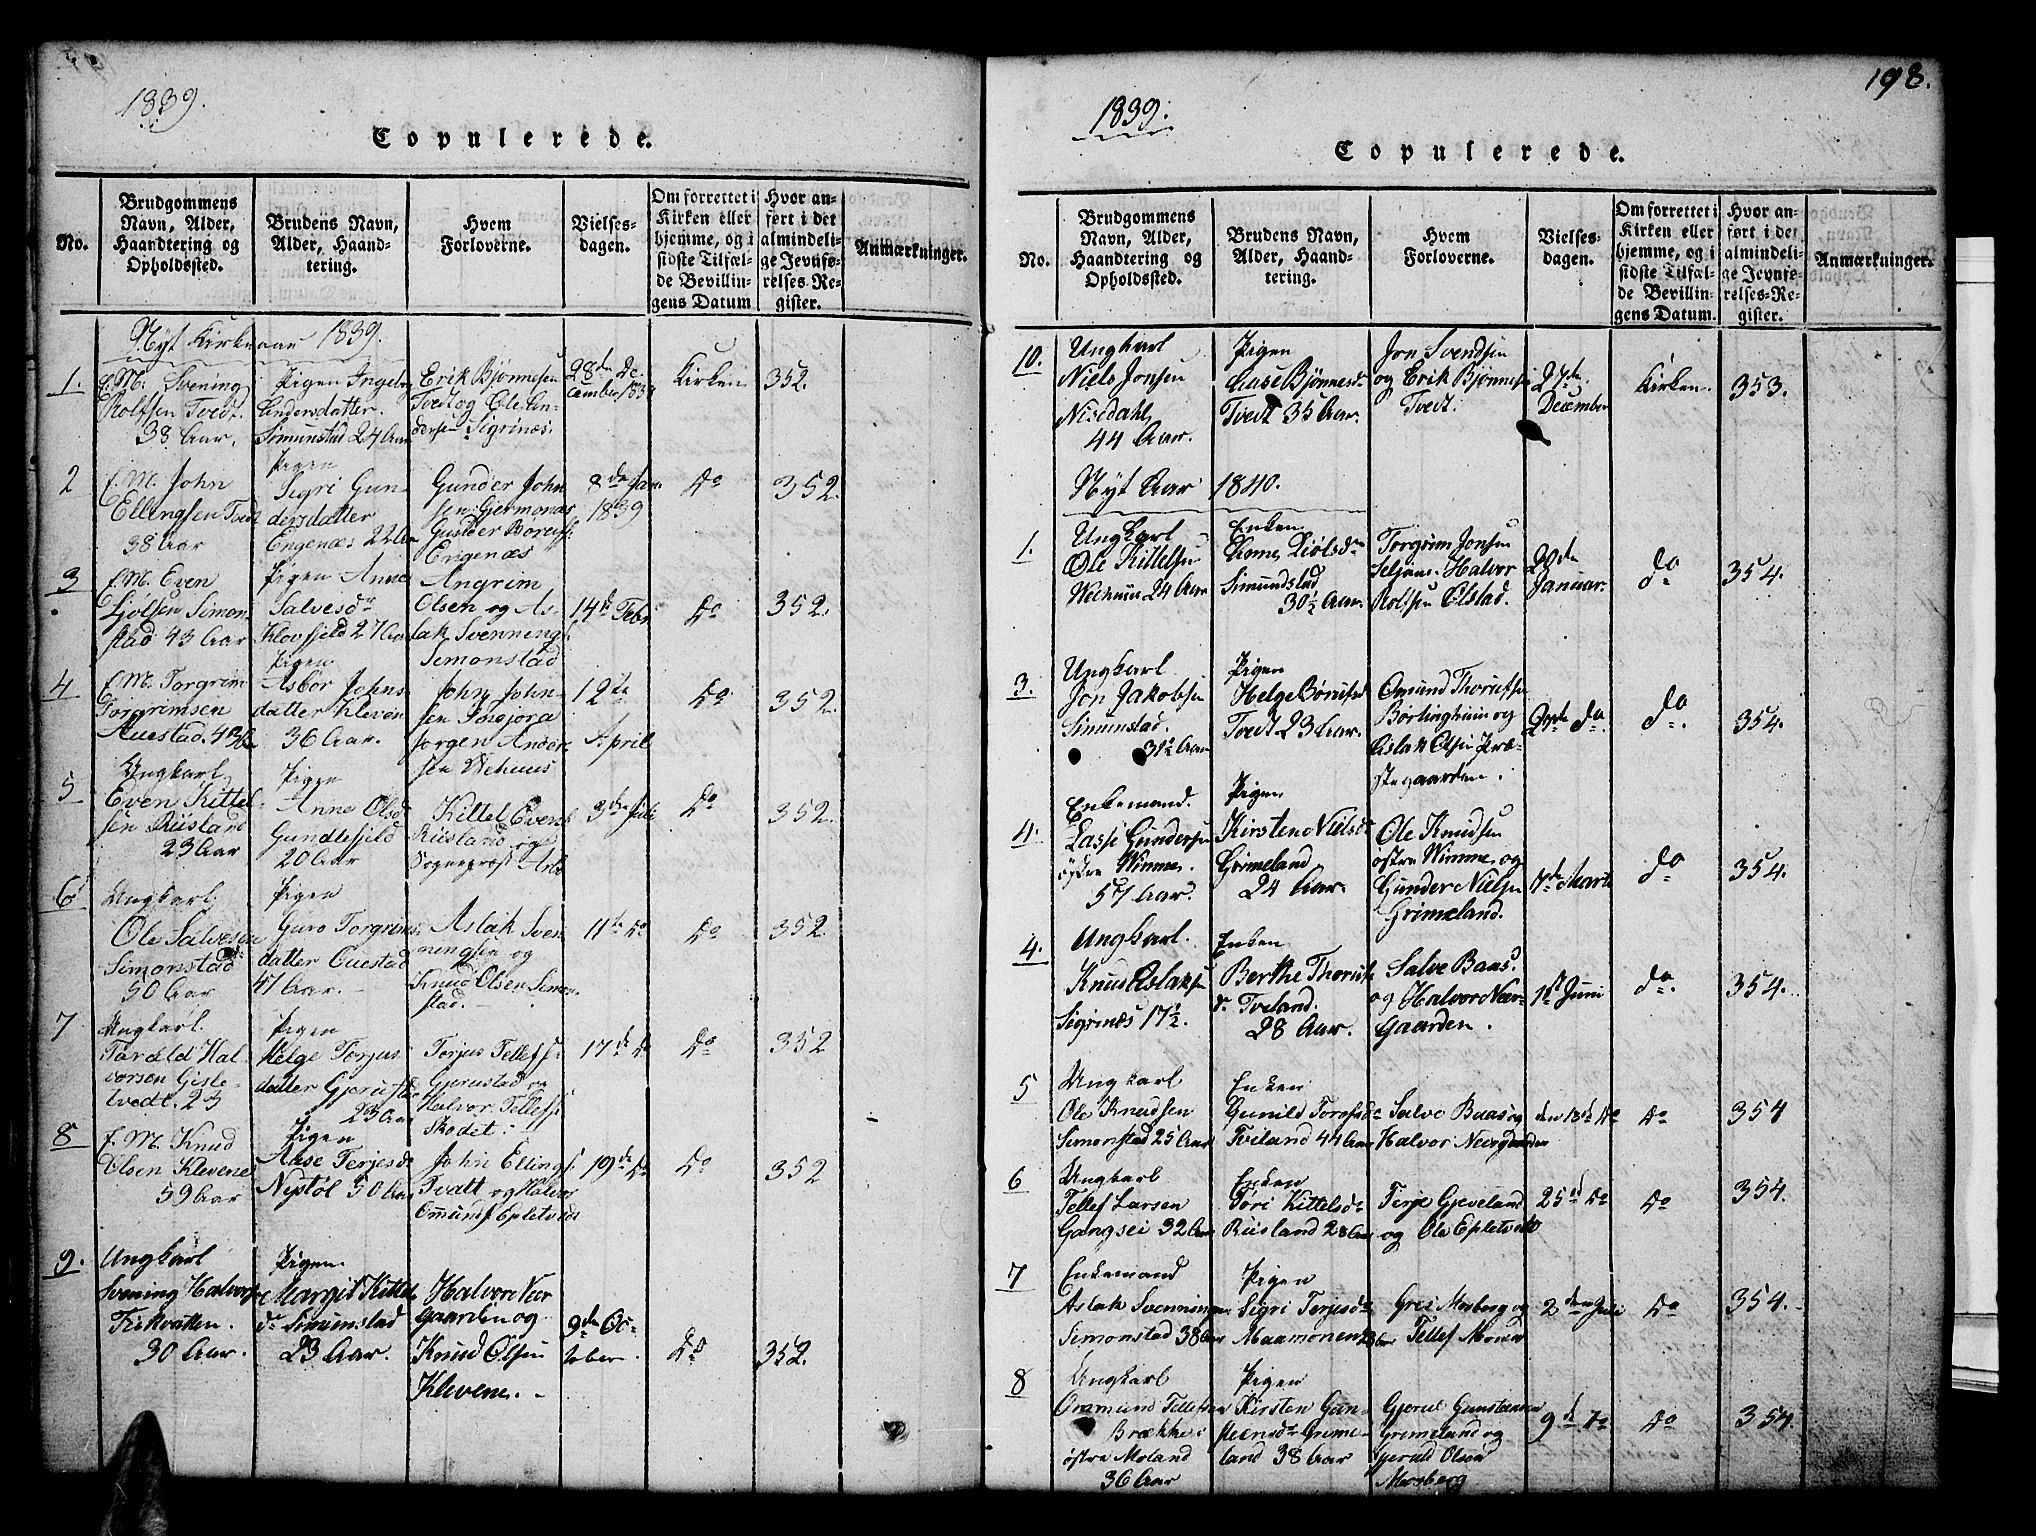 1839.
Copulerede.
No.
Brudgommens
Navn, Alder,
Haandtering og
Opholdssted.
Brudens Navn,
Alder, Haand-
tering.
Hvem
Forloverne.
Vielses-
dagen.
Om forrettet i
Kirken eller
hjemme, og i
sidste Tilfæl-
de Bevillin-
gens Datum
Hvor an-
ført i det
almindeli-
ge Jevnfø-
relses-Re-
gister.
Anmærkninger.
Nyt Kirkeaar 1839.
1.
E. M. Svening
Rolfsen Tvedt.
38 Aar.
Pigen Ingebor
Andersdatter.
Simunstad 27 Aar
Erik Bjønnesen
Tvedt og Ole An-
dersen Sigrinæs.
28de De-
cember 1838
Kirken
352.
2
E. M. John
Ellingsen Tvedt
38 Aar
Pigen
Sigri Gun-
dersdatter
Engenæs 22 Aar
Gunder John
sen Gjermonæs
Gunder Børufs:
Engenæs
8de Jan.
1839
Do
352.
3
E. M. Even
Liølsen Simon-
stad 43 Aar
Pigen Anne
Salvesdr
Klovfjeld 27 Aar
Angrim
Olsen og As-
lak Svennings:
Simonstad
14de Febr
Do
352.
4
E. M. Torgrim
Torgrimsen
Auestad. 43
Pigen
Asbor Johns-
datter Kleven
36 Aar.
John John-
sen
Jørgen Ander-
sen Vehuus
12te
April
Do
352.
5
Ungkarl
Even Kittel-
sen Riisland
23 Aar
Pigen
Anne Olsd
Gundlefjeld
20 Aar
Kittel Evens:
Riisland og
Sognepræst
3de Juli
Do
352.
6
Ungkarl
Ole Salvesen
Simonstad
50 Aar
Pigen
Guro Torgrims-
datter Auestad
47 Aar.
Aslak Sven-
ningsen og
Knud Olsen Simon-
stad.
11te Do
Do
352.
7
Ungkarl.
Tarald Hal-
vorsen Gisle-
tvedt. 23
Pigen
Helge Torjus
datter Gjerustad
23 Aar
Torjus Tellefs:
Gjerustad og
Halvor Tellefs:
Skodet.
17de Do
Do
352
8
E. M. Knud
Olsen Klevene
59 Aar
Pigen
Aase Terjesdr
Nystøl 50 Aar
John Ellings:
Tvedt og Halvor
Omunds: Epletvedt
19de Do
Do
352
9.
Ungkarl
Svening Halvors-
Fiskvatten.
30 Aar.
Pigen
Margit Kittels
dr Simunstad
23 Aar.
Halvor Neer
gaarden og
Knud Olsen
Klevene.
9de Oc-
tober.
Do
352.
198.
1839.
Copulerede.
No.
Brudgommens
Navn, Alder,
Haandtering og
Opholdssted.
Brudens Navn,
Alder, Haand-
tering.
Hvem
Forloverne.
Vielses-
dagen.
Om forrettet i
Kirken eller
hjemme, og i
sidste Tilfæl-
de Bevillin-
gens Datum.
Hvor an-
ført i det
almindeli-
ge Jevnfø-
relses-Re-
gister.
Anmærkninger.
10.
Ungkarl
Niels Jonsen
Nisedahl,
44 Aar.
Pigen
Aase Bjønnesd
Tvedt 35 Aar.
Jon Svendsen
og Erik Bjønnesen
Tvedt.
27de
December
Kirken.
353.
Nyt Aar 1840.
1.
Ungkarl
Ole Kittelsen
Wehuus 24 Aar
Enken
Anne Liølsdr
Simundstad
30½ Aar
Torgrim Jonsen
Seljaas. Halvor
Rolfsen Ølstad.
20de
Januar.
do
354.
3.
Ungkarl
Jon Jakobsen
Simunstad.
31½ Aar
Pigen
Helge Børufsd
Tvedt 23 Aar.
Omund Thorufsen
Børlinghuus og
Aslak Olsen Præ-
stegaarden.
do.
do.
354.
4.
Enkemand.
Lasse Gundersen
østre Wimme.
57 Aar.
Pigen
Kirsten Nielsd
Grimeland
24 Aar
Ole Knudsen
østre Wimme og
Gunder Nielsen
Grimeland.
7de Marts
do
354.
4.
Ungkarl.
Knus Aslaksen
Sigrinæs 17½.
Enken
Berthe Thorufs
dr Tveland.
28 Aar.
Salve Baas.
og Halvor Neer-
gaarden.
1st Juni
do.
354.
5
Ungkarl
Ole Knudsen
Simonstad 25 Aar
Enken
Gunild Torufsdr
Tveiland 44 Aar
Salve Baas og
Halvor Neergaarden
den 13de Do
Do
354
6
Ungkarl
Tellef Larsen
Gangsei 32 Aar
Enken
Tøri Kittelsdr
Riisland 28 Aar
Terje Gjeveland
og Ole Epletvedt
25de Do
Do
354.
7
Enkemand
Aslak Svenningsen
Simonstad 38 Aar
Pigen
Sigri Terjesdr
Maamonen 28 Aar
Gres Mosberg og
Tellef Monen
2den Juli
Do
354.
8
Ungkarl
Ommund Tellefsen
Brække i
østre Moland
36 Aar
Pigen
Kirsten Gun-
steensdr Grime-
land 38 Aar
Gjerul Gunsteensen
Grimeland og
Gjeruld Olsen
Mosberg
9de Do
Do
354.